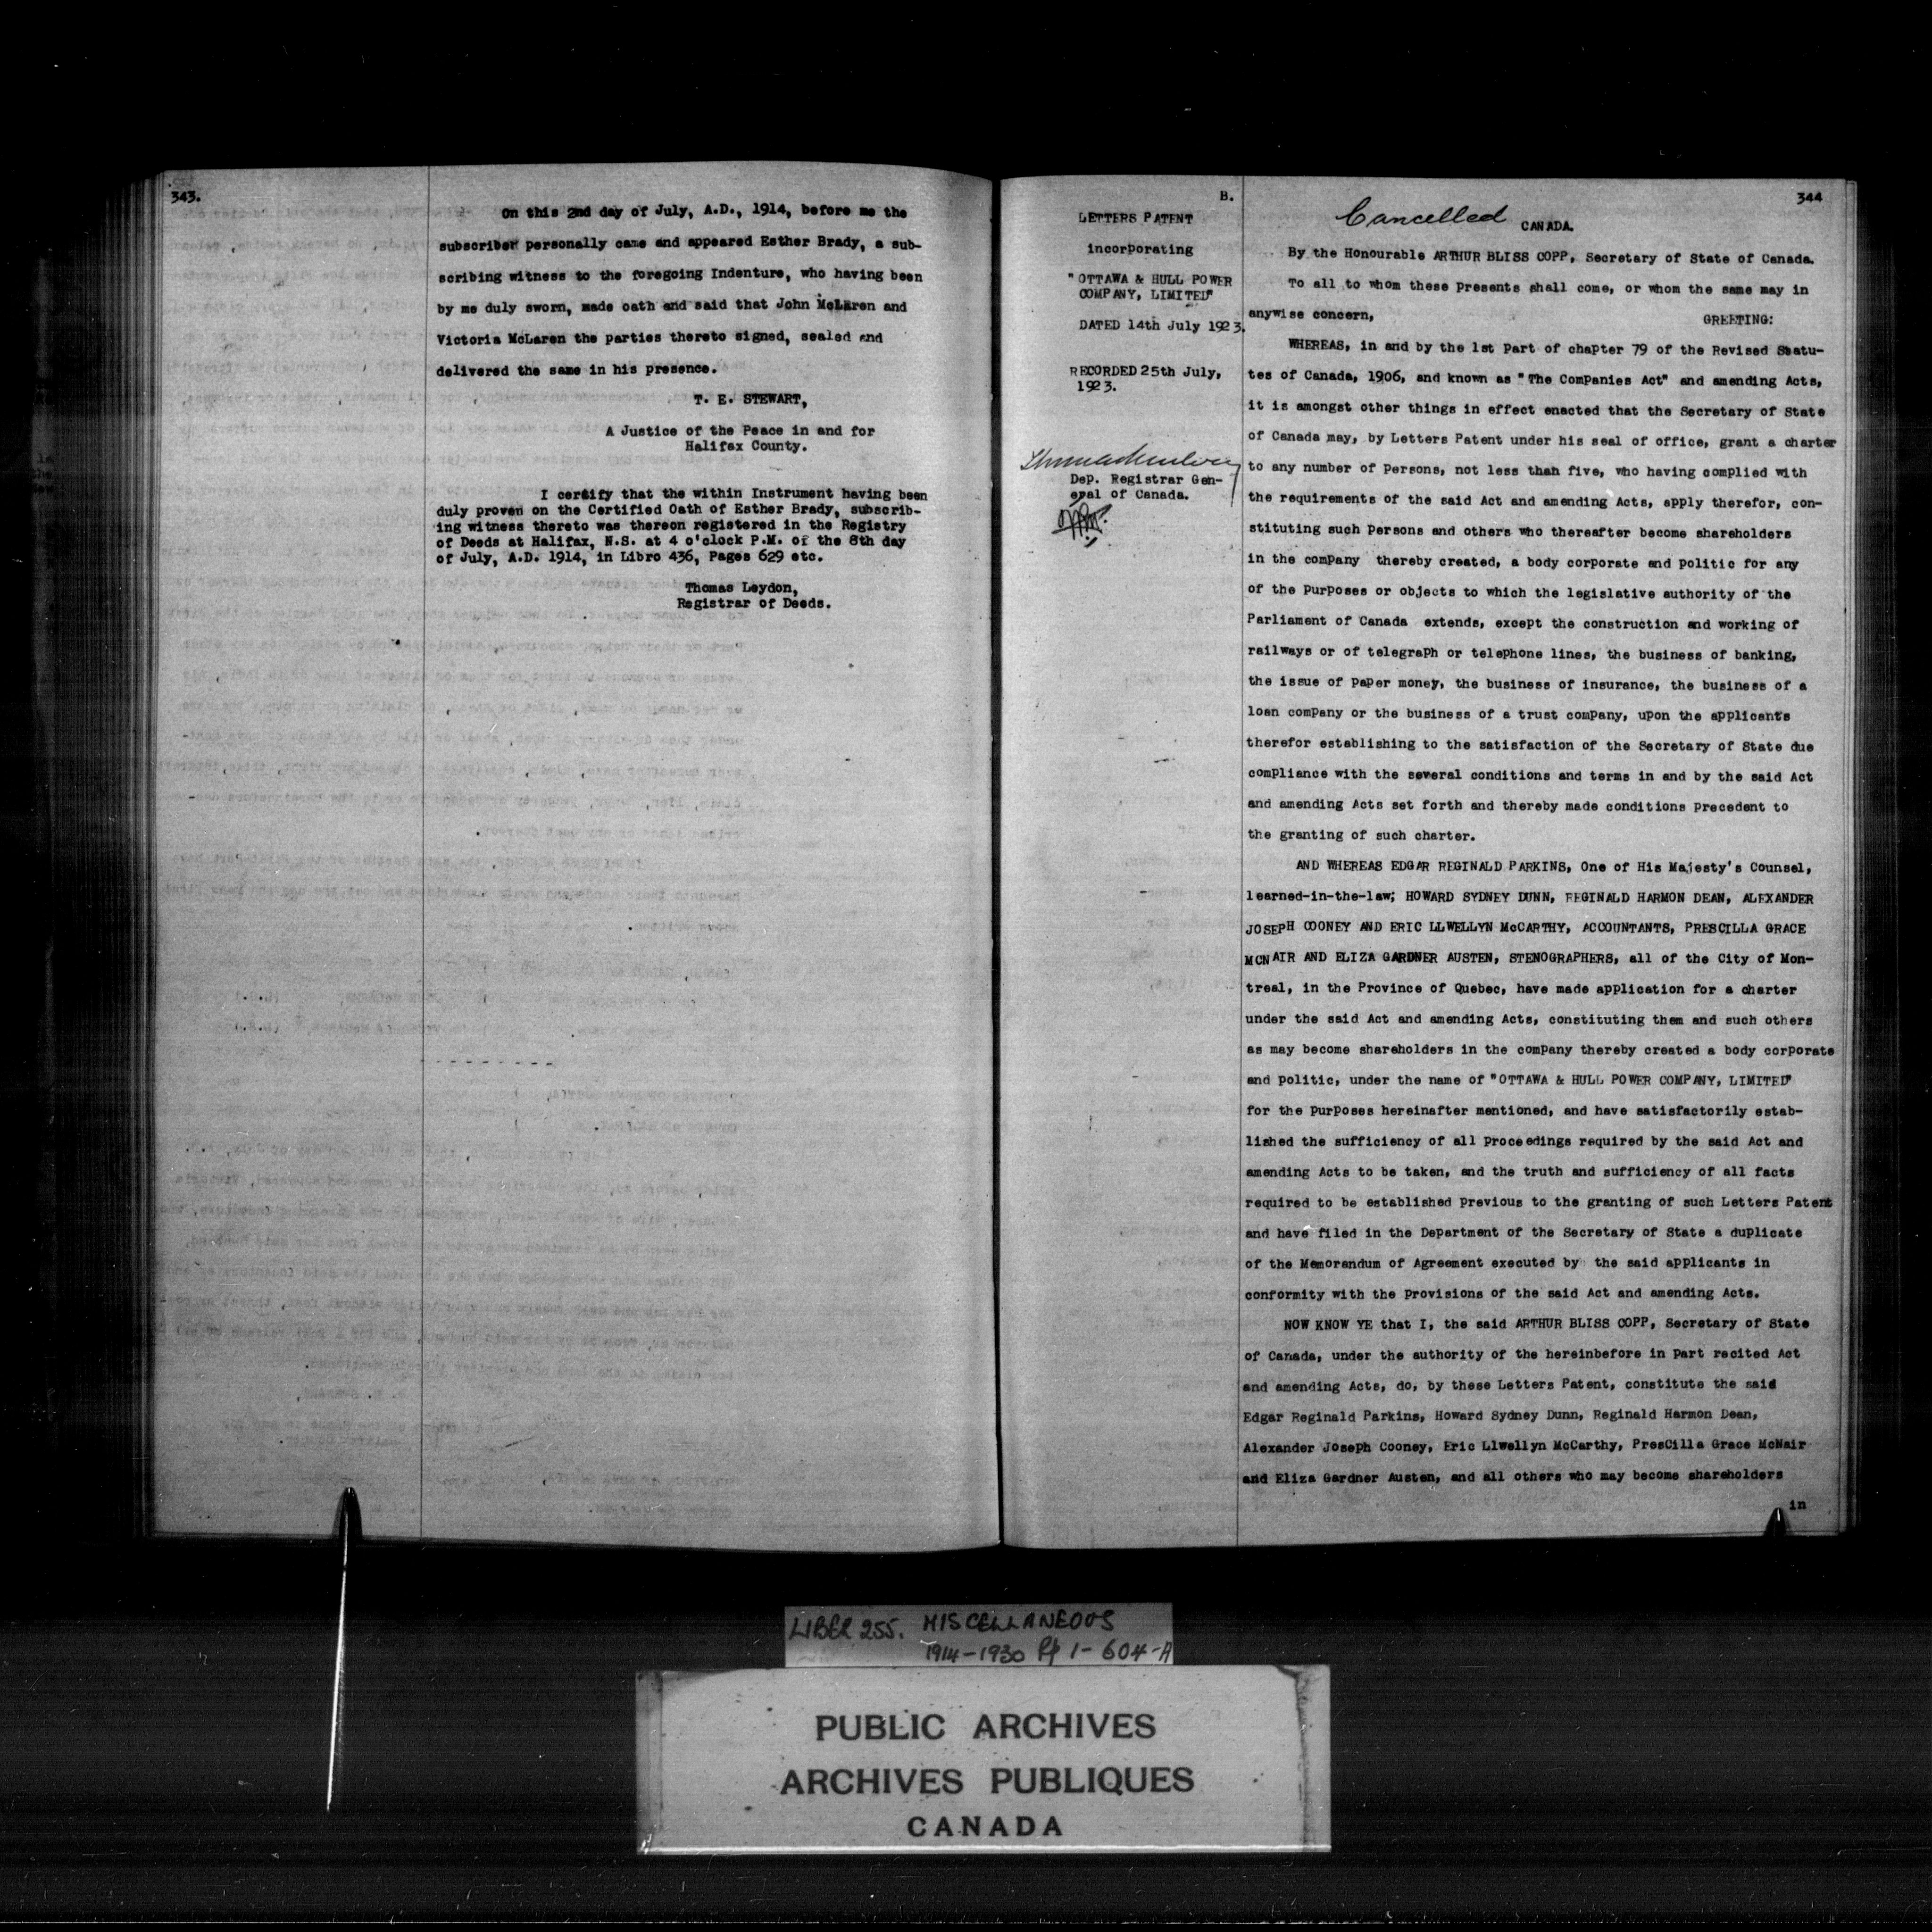 343.
On this 2nd day of July, A.D., 1914, before me the
subscriber personally came and appeared Esther Brady, a sub-
scribing witness to the foregoing Indenture, who having been
by me duly sworn, made oath and said that John McLaren and
Victoria McLaren the parties thereto signed, sealed and
delivered the same in his presence.
T. E. STEWART,
A Justice of the Peace in and for
Halifax County.
I certify that the within Instrument having been
duly proven on the Certified Oath of Esther Brady, subscrib-
ing witness thereto was thereon registered in the Registry
of Deeds at Halifax, N.S. at 4 o'clock P.M. of the 8th day
of July, A.D. 1914, in Libro 436, Pages 629 etc.
Thomas Leydon,
Registrar of Deeds.
B.
LETTERS PATENT
incorporating
"OTTAWA & HULL POWER
COMPANY, LIMITED"
DATED 14th July 1923.
RECORDED 25th July,
1923.
Dep. Registrar Gen-
eral of Canada.
344
Cancelled
CANADA.
By the Honourable ARTHUR BLISS COPP, Secretary of State of Canada.
To all to whom these Presents shall come, or whom the same may in
anywise concern, GREETING:
WHEREAS, in and by the 1st Part of chapter 79 of the Revised Statu-
tes of Canada, 1906, and known as "The Companies Act" and amending Acts,
it is amongst other things in effect enacted that the Secretary of State
of Canada may, by Letters Patent under his seal of office, grant a charter
to any number of Persons, not less than five, who having complied with
the requirements of the said Act and amending Acts, apply therefor, con-
stituting such Persons and others who thereafter become shareholders
in the company thereby created, a body corporate and politic for any
of the Purposes or objects to which the legislative authority of the
Parliament of Canada extends, except the construction and working of
railways or of telegraph or telephone lines, the business of banking,
the issue of paper money, the business of insurance, the business of a
loan company or the business of a trust company, upon the applicants
therefor establishing to the satisfaction of the Secretary of State due
compliance with the several conditions and terms in and by the said Act
and amending Acts set forth and thereby made conditions precedent to
the granting of such charter.
AND WHEREAS EDGAR REGINALD PARKINS, One of His Majesty's Counsel,
learned-in-the-law; HOWARD SYDNEY DUNN, REGINALD HARMON DEAN, ALEXANDER
JOSEPH COONEY AND ERIC LLWELLYN McCARTHY, ACCOUNTANTS, PRESCILLA GRACE
MCNAIR AND ELIZA GARDNER AUSTEN, STENOGRAPHERS, all of the City of Mon-
treal, in the Province of Quebec, have made application for a charter
under the said Act and amending Acts, constituting them and such others
as may become shareholders in the company thereby created a body corporate
and politic, under the name of "OTTAWA & HULL POWER COMPANY, LIMITED"
for the Purposes hereinafter mentioned, and have satisfactorily estab-
lished the sufficiency of all proceedings required by the said Act and
amending Acts to be taken, and the truth and sufficiency of all facts
required to be established previous to the granting of such Letters Patent
and have filed in the Department of the Secretary of State a duplicate
of the Memorandum of Agreement executed by the said applicants in
conformity with the Provisions of the said Act and amending Acts.
NOW KNOW YE that I, the said ARTHUR BLISS COPP, Secretary of State
of Canada, under the authority of the hereinbefore in part recited Act
and amending Acts, do, by these Letters Patent, constitute the said
Edgar Reginald Parkins, Howard Sydney Dunn, Reginald Harmon Dean,
Alexander Joseph Cooney, Eric Llwellyn McCarthy, PresCilla Grace McNair
and Eliza Gardner Austen, and all others who may become shareholders
in
LIBER 255. MISCELLANEOUS
1914-1930 Pp 1-604-A
PUBLIC ARCHIVES
ARCHIVES PUBLIQUES
CANADA